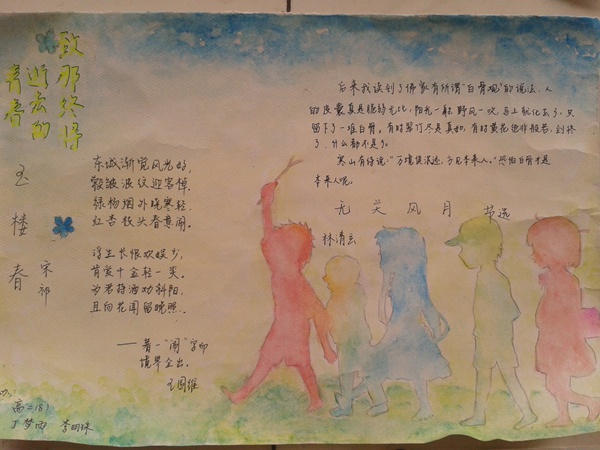 致那终得
逝去的
青春
玉楼春
宋祁
东城渐觉风光好,
縠皱波纹迎客棹,
绿杨烟外晓寒轻,
红杏枝头春意闹。
浮生长恨欢娱少,
肯爱千金轻一笑。
为君持酒劝斜阳,
且向花间留晚照。
——着一“闹”字而
境界全出。
王国维
后来我读到了佛家有所谓“白骨观”的说法,人
的皮囊真是脆弱无比,阳光一射,野风一吹,马上就化去了,只
留下了一堆白骨。有时翠竹尽是真如,有时黄花绝非般若,到终
了,什么都不是了。
寒山有诗说:“万境俱泯迹,方见本来人。”恐怕白骨才是
本来人呢。
光 笑 风 月 节选
林清玄
高二(8)
丁梦雨 李明珠